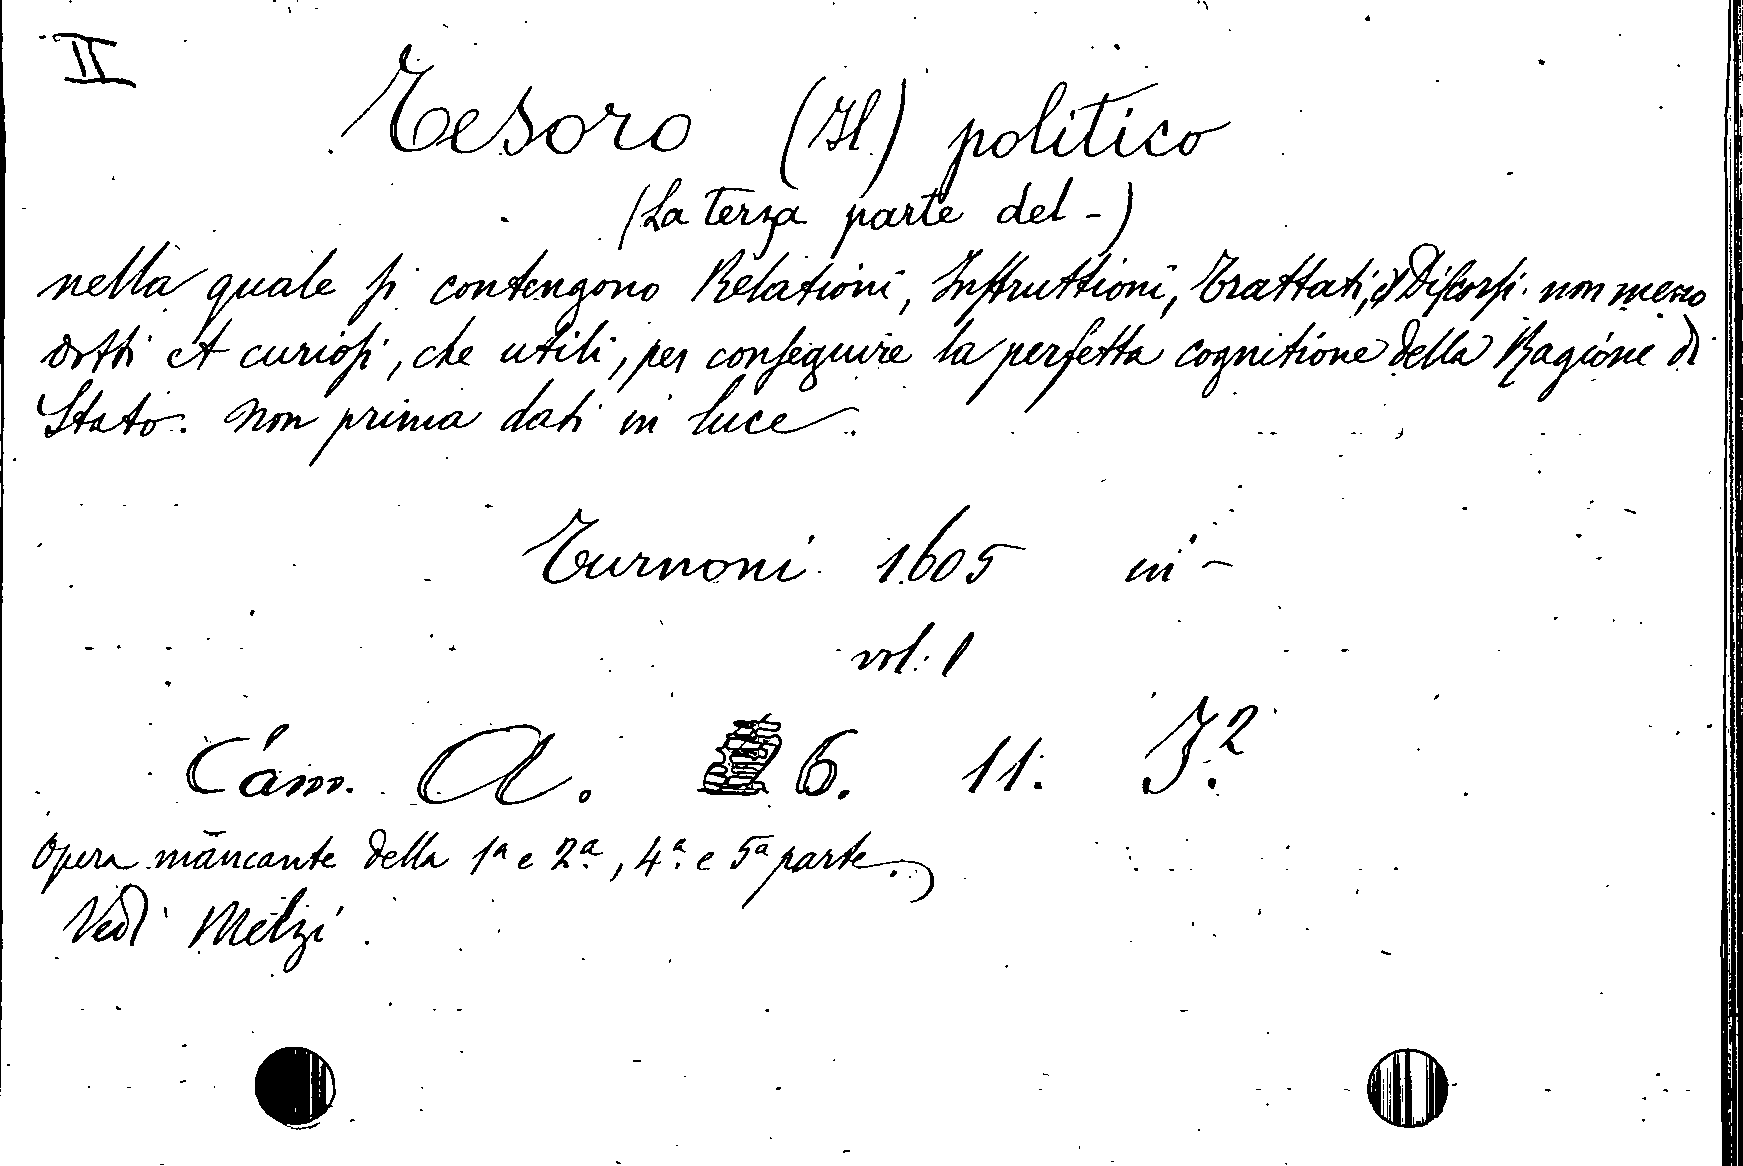 II
Tesoro (Il) politico
(La terza parte del -)
nella quale si contengono Relationi, Instruttioni, Trattati, & Discorsi non meno
dotti et curiosi, che utili, per conseguire la perfetta cognitione della Ragione di
Stato. Non prima dati in luce.
Turnoni 1605 in -
vol: 1
Cam. A. 6. 11. I.2
Opera mancante della 1ª e 2ª, 4ª e 5ª parte.
Vedi Melzi